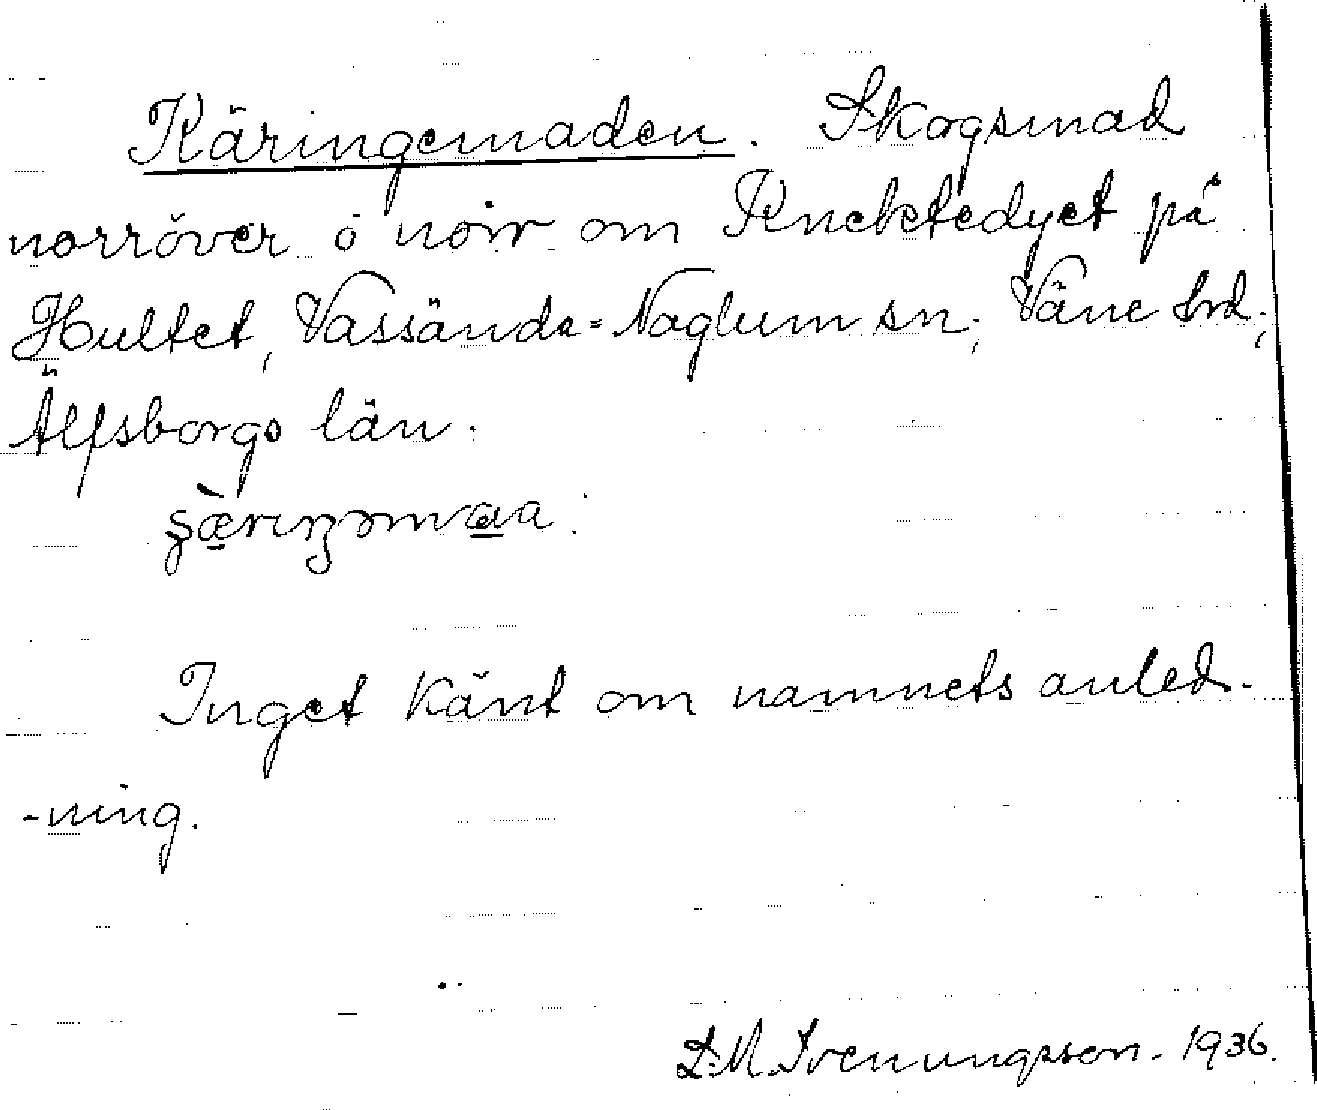 Käringemaden. Skogsmad
norröver o norr om Knektedyet på
Hultet, Vassände-Naglum sn; Väne hrd;
Älfsborgs län.
Inget känt om namnets anled-
-ning.
D.M. Svenungsson. 1936.